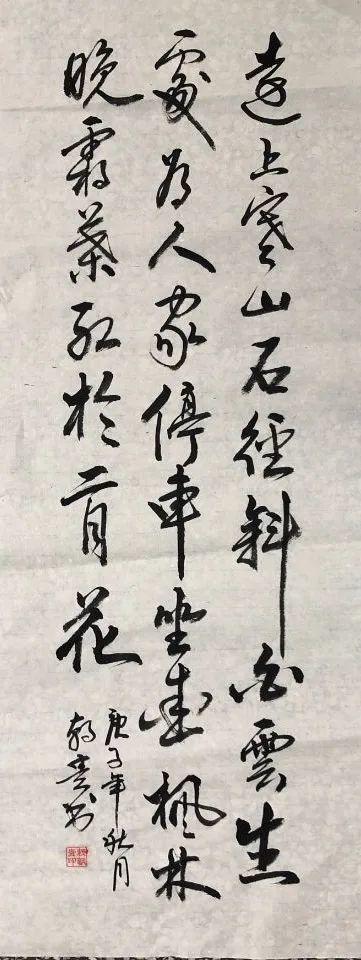 遠上寒山石徑斜白雲生
處有人家停車坐愛楓林
晚霜葉紅於二月花
庚子年秋月
书